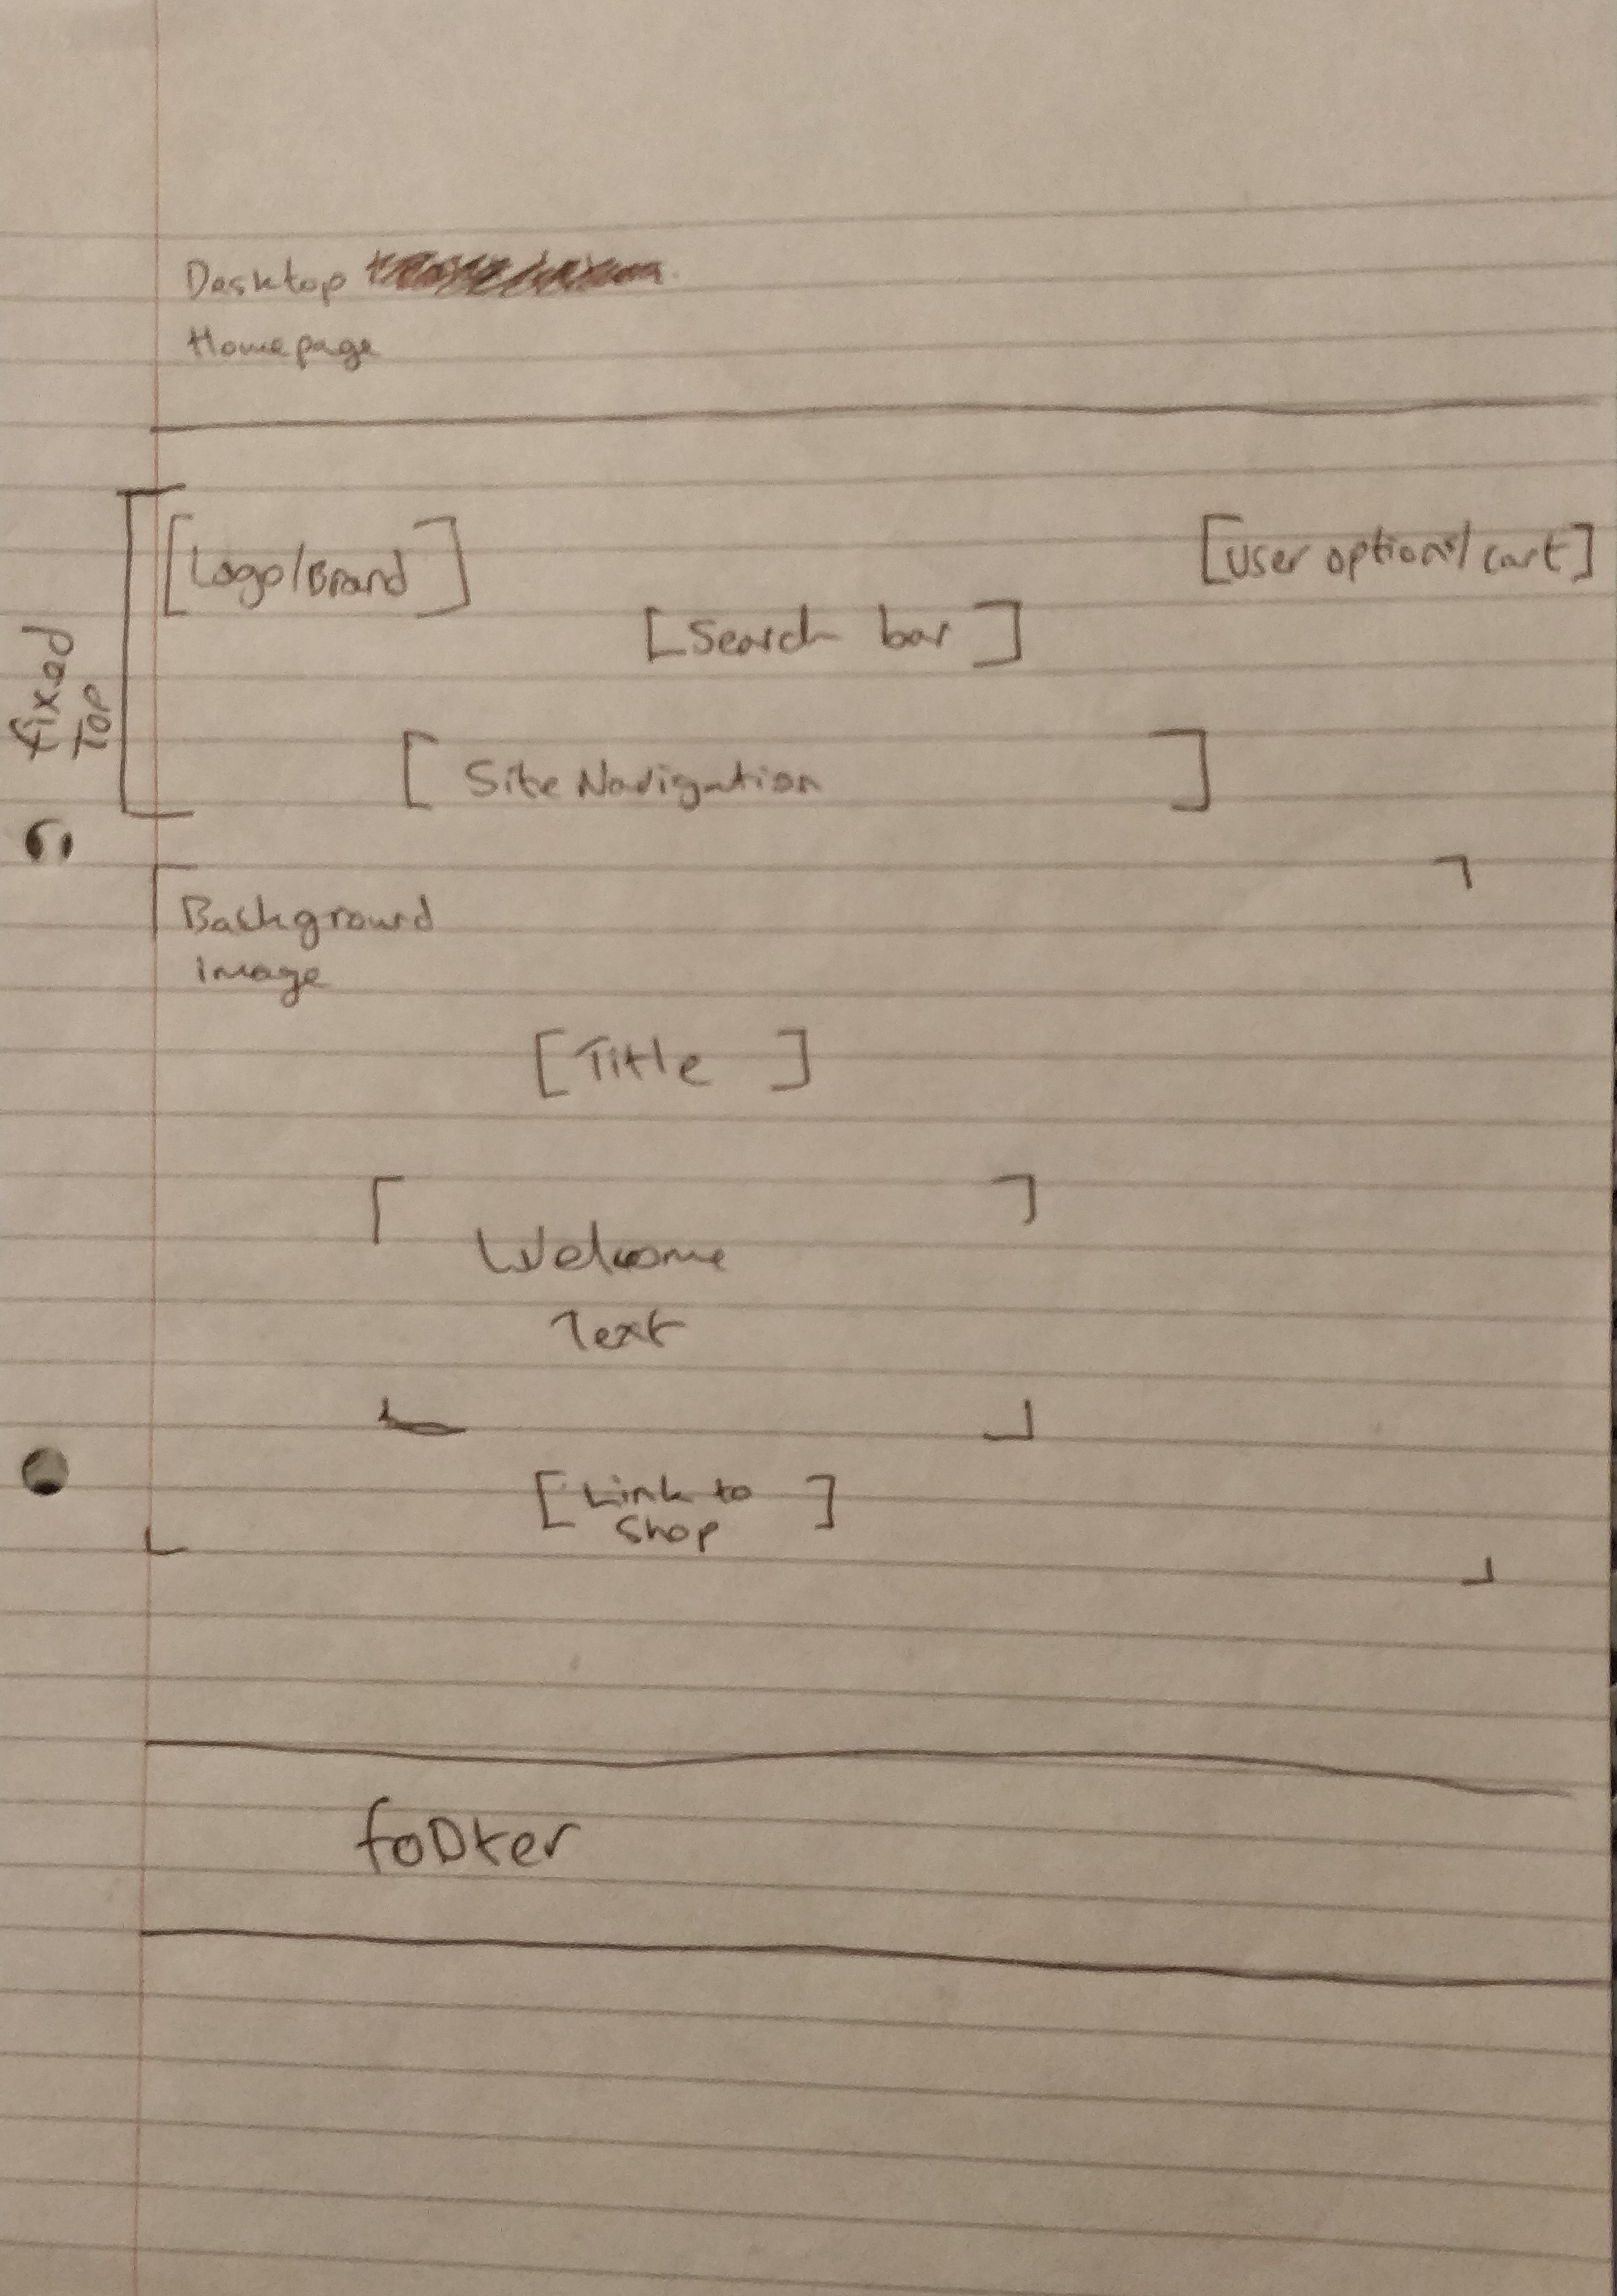 Desktop
Homepage
fixed
TOP
[Logo/Brand]
[User options/cart]
[Search bar]
[Site Navigation]
Background
Image
[Title]
Welcome
Text
[Link to
Shop]
footer